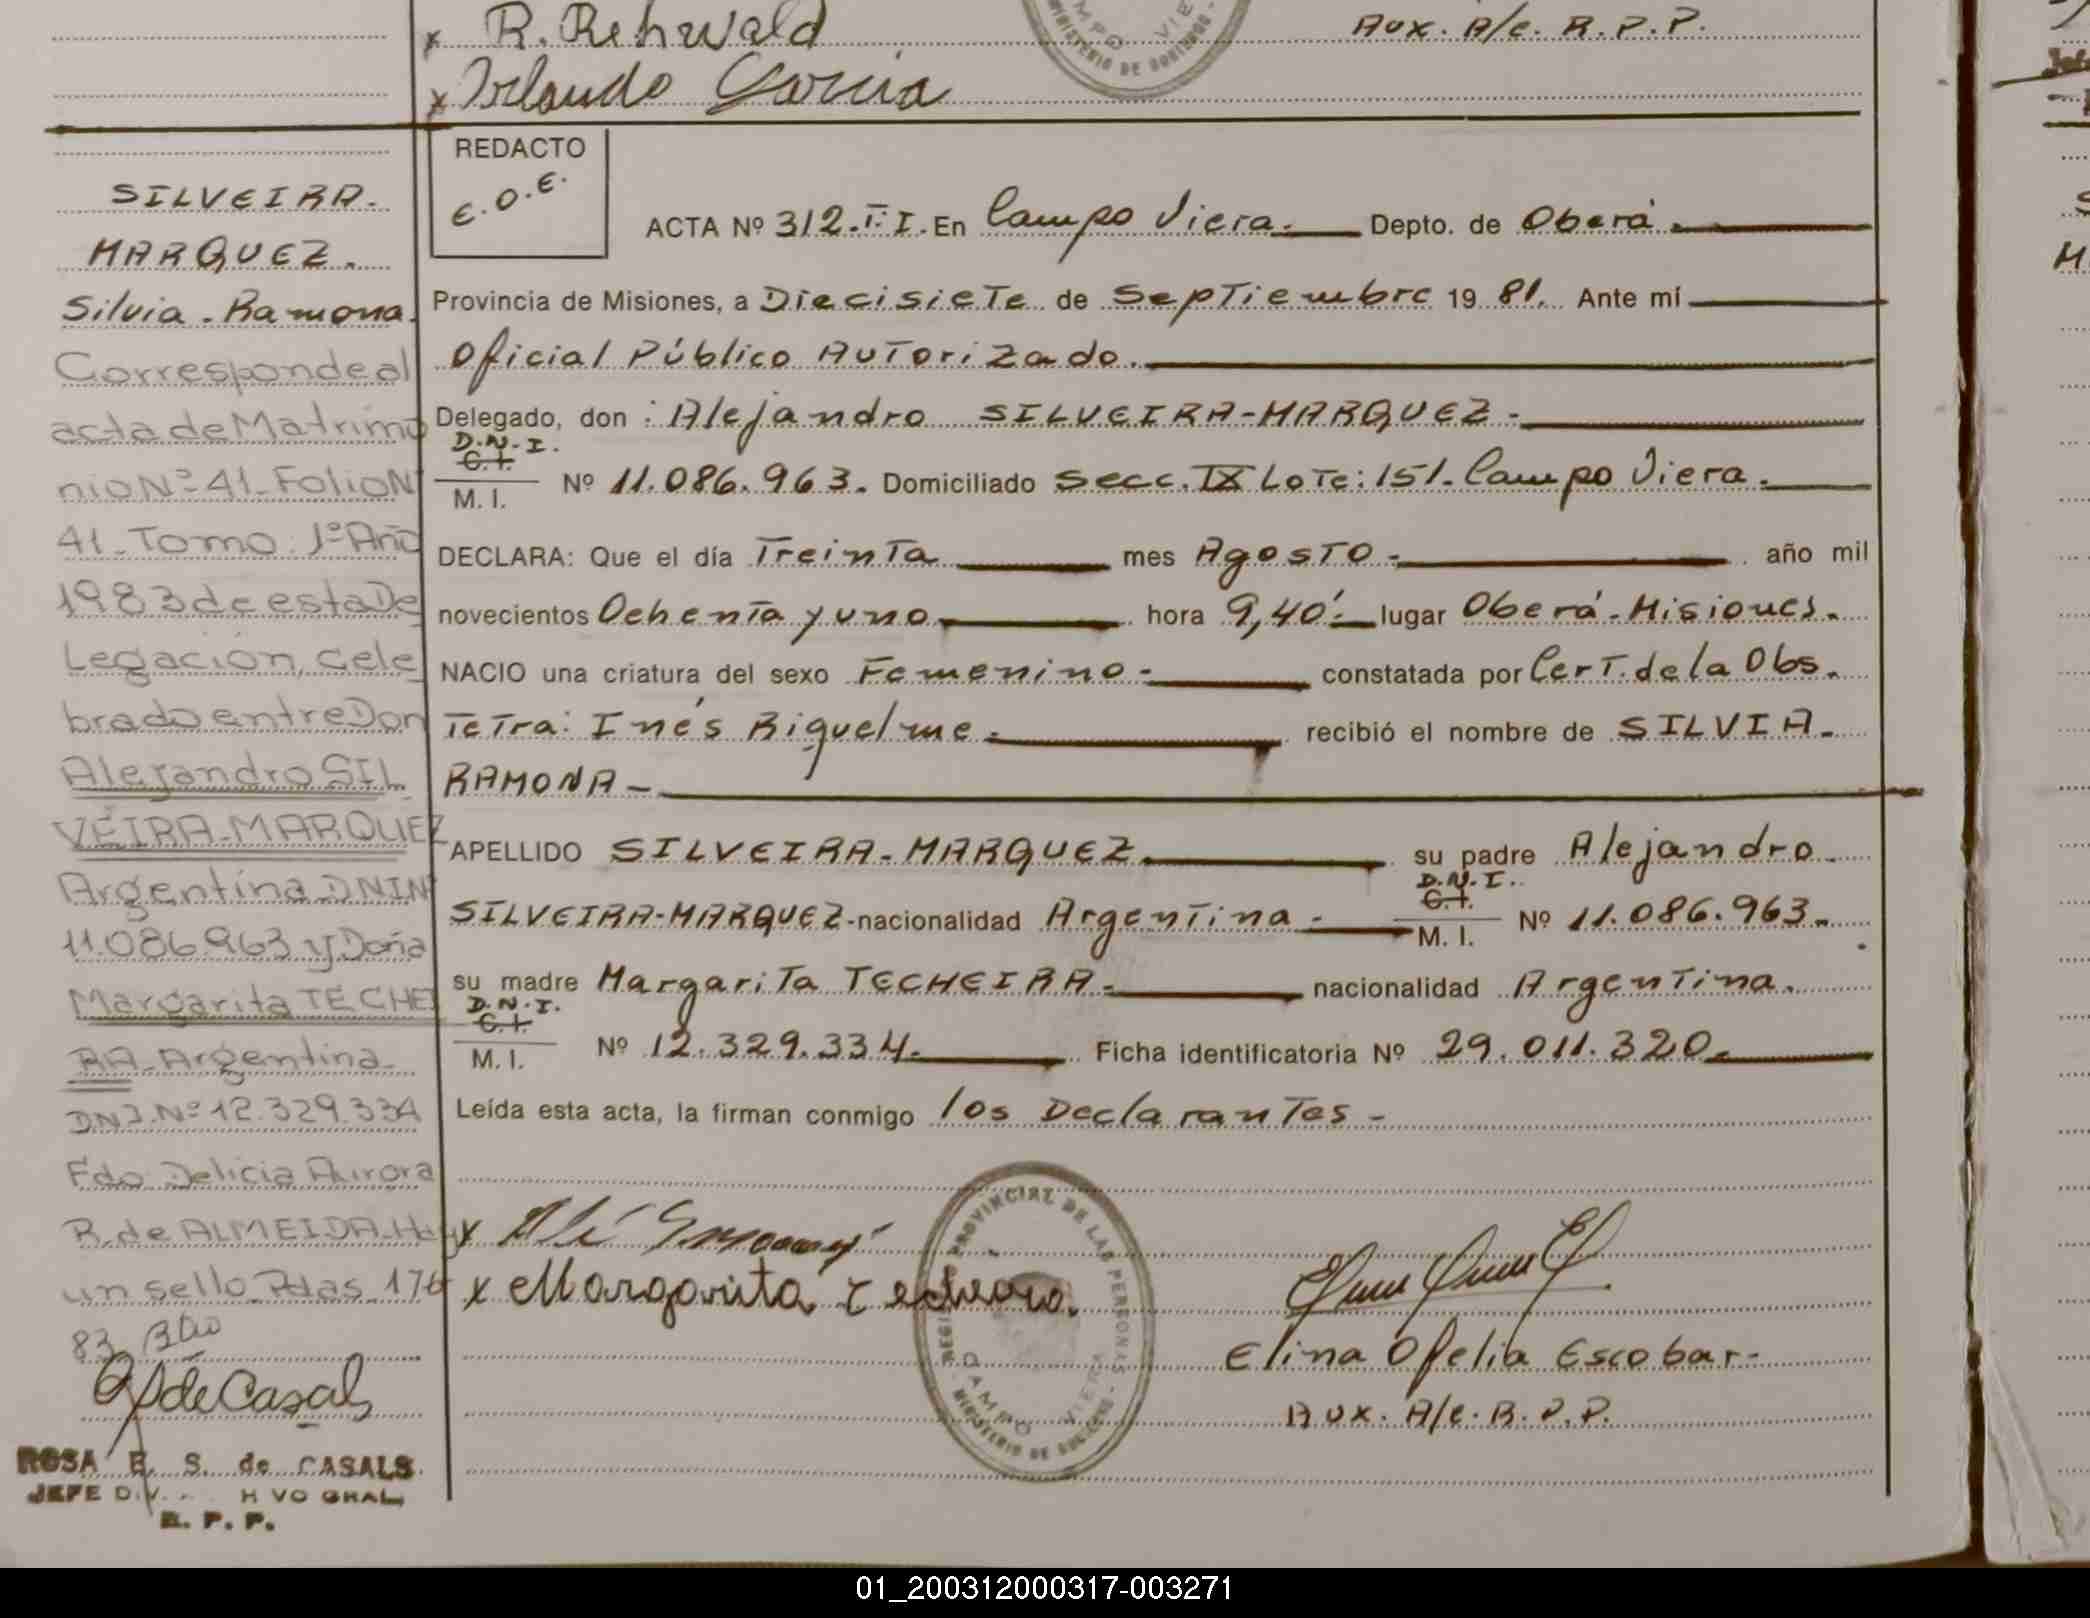 R. Rehwald
Aux. A/c. R.P.P.
x Orlando Garcia
MINISTERIO DE GOBIERNO
SILVEIRA.
MARQUEZ.
Silvia. Ramona.
Corresponde al
acta de Matrimo
nio Nº 41 Folio Nº
41 Tomo 1º Año
1983 de esta De
Legación, Cele
brado entre Don
Alejandro SIL
VEIRA-MARQUEZ
Argentina DNI Nº
11.086.963 y Doña
Margarita TECHEI
RA-Argentina
DNI. Nº 12.329.334
Fdo Delicia Aurora
R. de ALMEIDA. Hay
un sello. Pdas 176
83
ROSA E. S. de CASALS
R. P. P.
REDACTO
E.O.E.
ACTA Nº 312.T.I. En Campo Viera. Depto. de Oberá.
Provincia de Misiones, a Diecisiete de Septiembre 19 81. Ante mí
Oficial Público Autorizado.
Delegado, don : Alejandro SILVEIRA-MARQUEZ.
D.N.I.
C.I.
M. I. Nº 11.086.963. Domiciliado Secc. IX Lote: 151. Campo Viera.
DECLARA: Que el día Treinta mes Agosto. año mil
novecientos Ochenta y uno. hora 9,40'. lugar Oberá. Misiones.
NACIO una criatura del sexo Femenino. constatada por Cert. de la Obs.
Tetra: Inés Riquelme. recibió el nombre de SILVIA.
RAMONA-
APELLIDO SILVEIRA-MARQUEZ. su padre Alejandro
SILVEIRA-MARQUEZ-nacionalidad Argentina. D.N.I. C.I. M. I. Nº 11.086.963.
su madre Margarita TECHEIRA. nacionalidad Argentina.
D.N.I.
C.I.
M. I. Nº 12.329.334. Ficha identificatoria Nº 29.011.320.
Leída esta acta, la firman conmigo los Declarantes-
x Margarita Techeira.
REGISTRO PROVINCIAL DE LAS PERSONAS
CAMPO VIERA
MINISTERIO DE GOBIERNO
Elina Ofelia Escobar-
Aux. A/c. R.P.P.
01_200312000317-003271